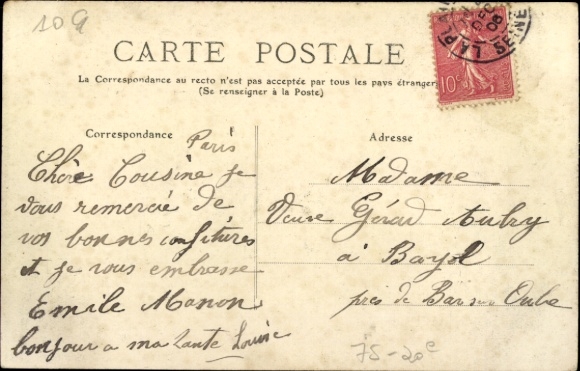 10 9
CARTE POSTALE
La Correspondance au recto n'est pas acceptée par tous les pays étrangers
(Se renseigner à la Poste)
LA PLAINE
DEC
06
SEINE
10c
Correspondance
Paris
Chère Cousine je
vous remercie de
vos bonnes confitures
et je vous embrasse
Emile Manon
bonjour a ma tante Louise
Adresse
Madame
Veuve Gérard Aubry
à Bayel
près de Bar sur Aube
75-20e